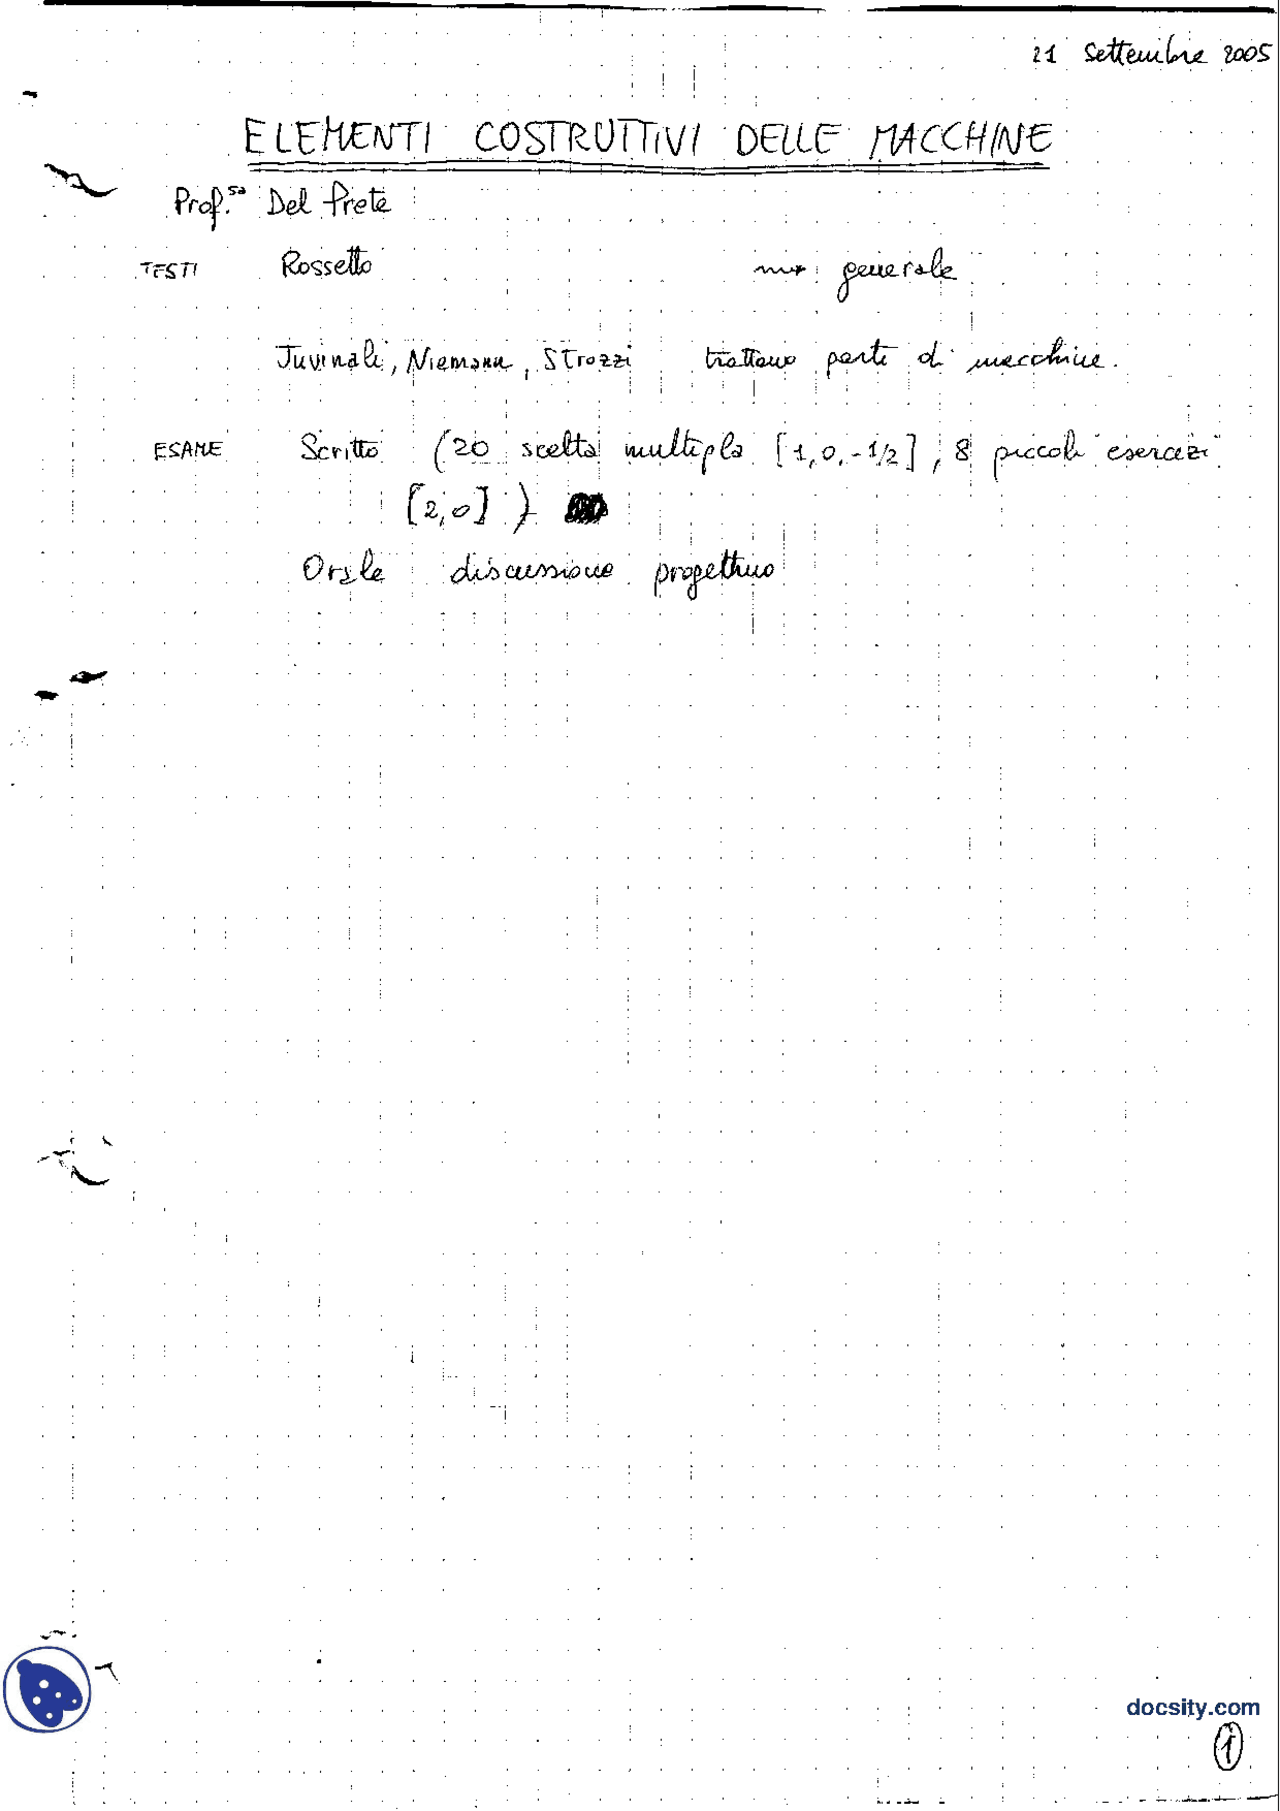 21 Settembre 2005
ELEMENTI COSTRUTTIVI DELLE MACCHINE
Prof.sa Del Prete
TESTI Rossetto generale
Juvinali, Niemann, Strozzi trattano parti di macchine.
ESAME Scritto (20 scelta multipla [1,0,-1/2], 8 piccoli esercizi
[2,0])
Orale discussione progettino
docsity.com
1